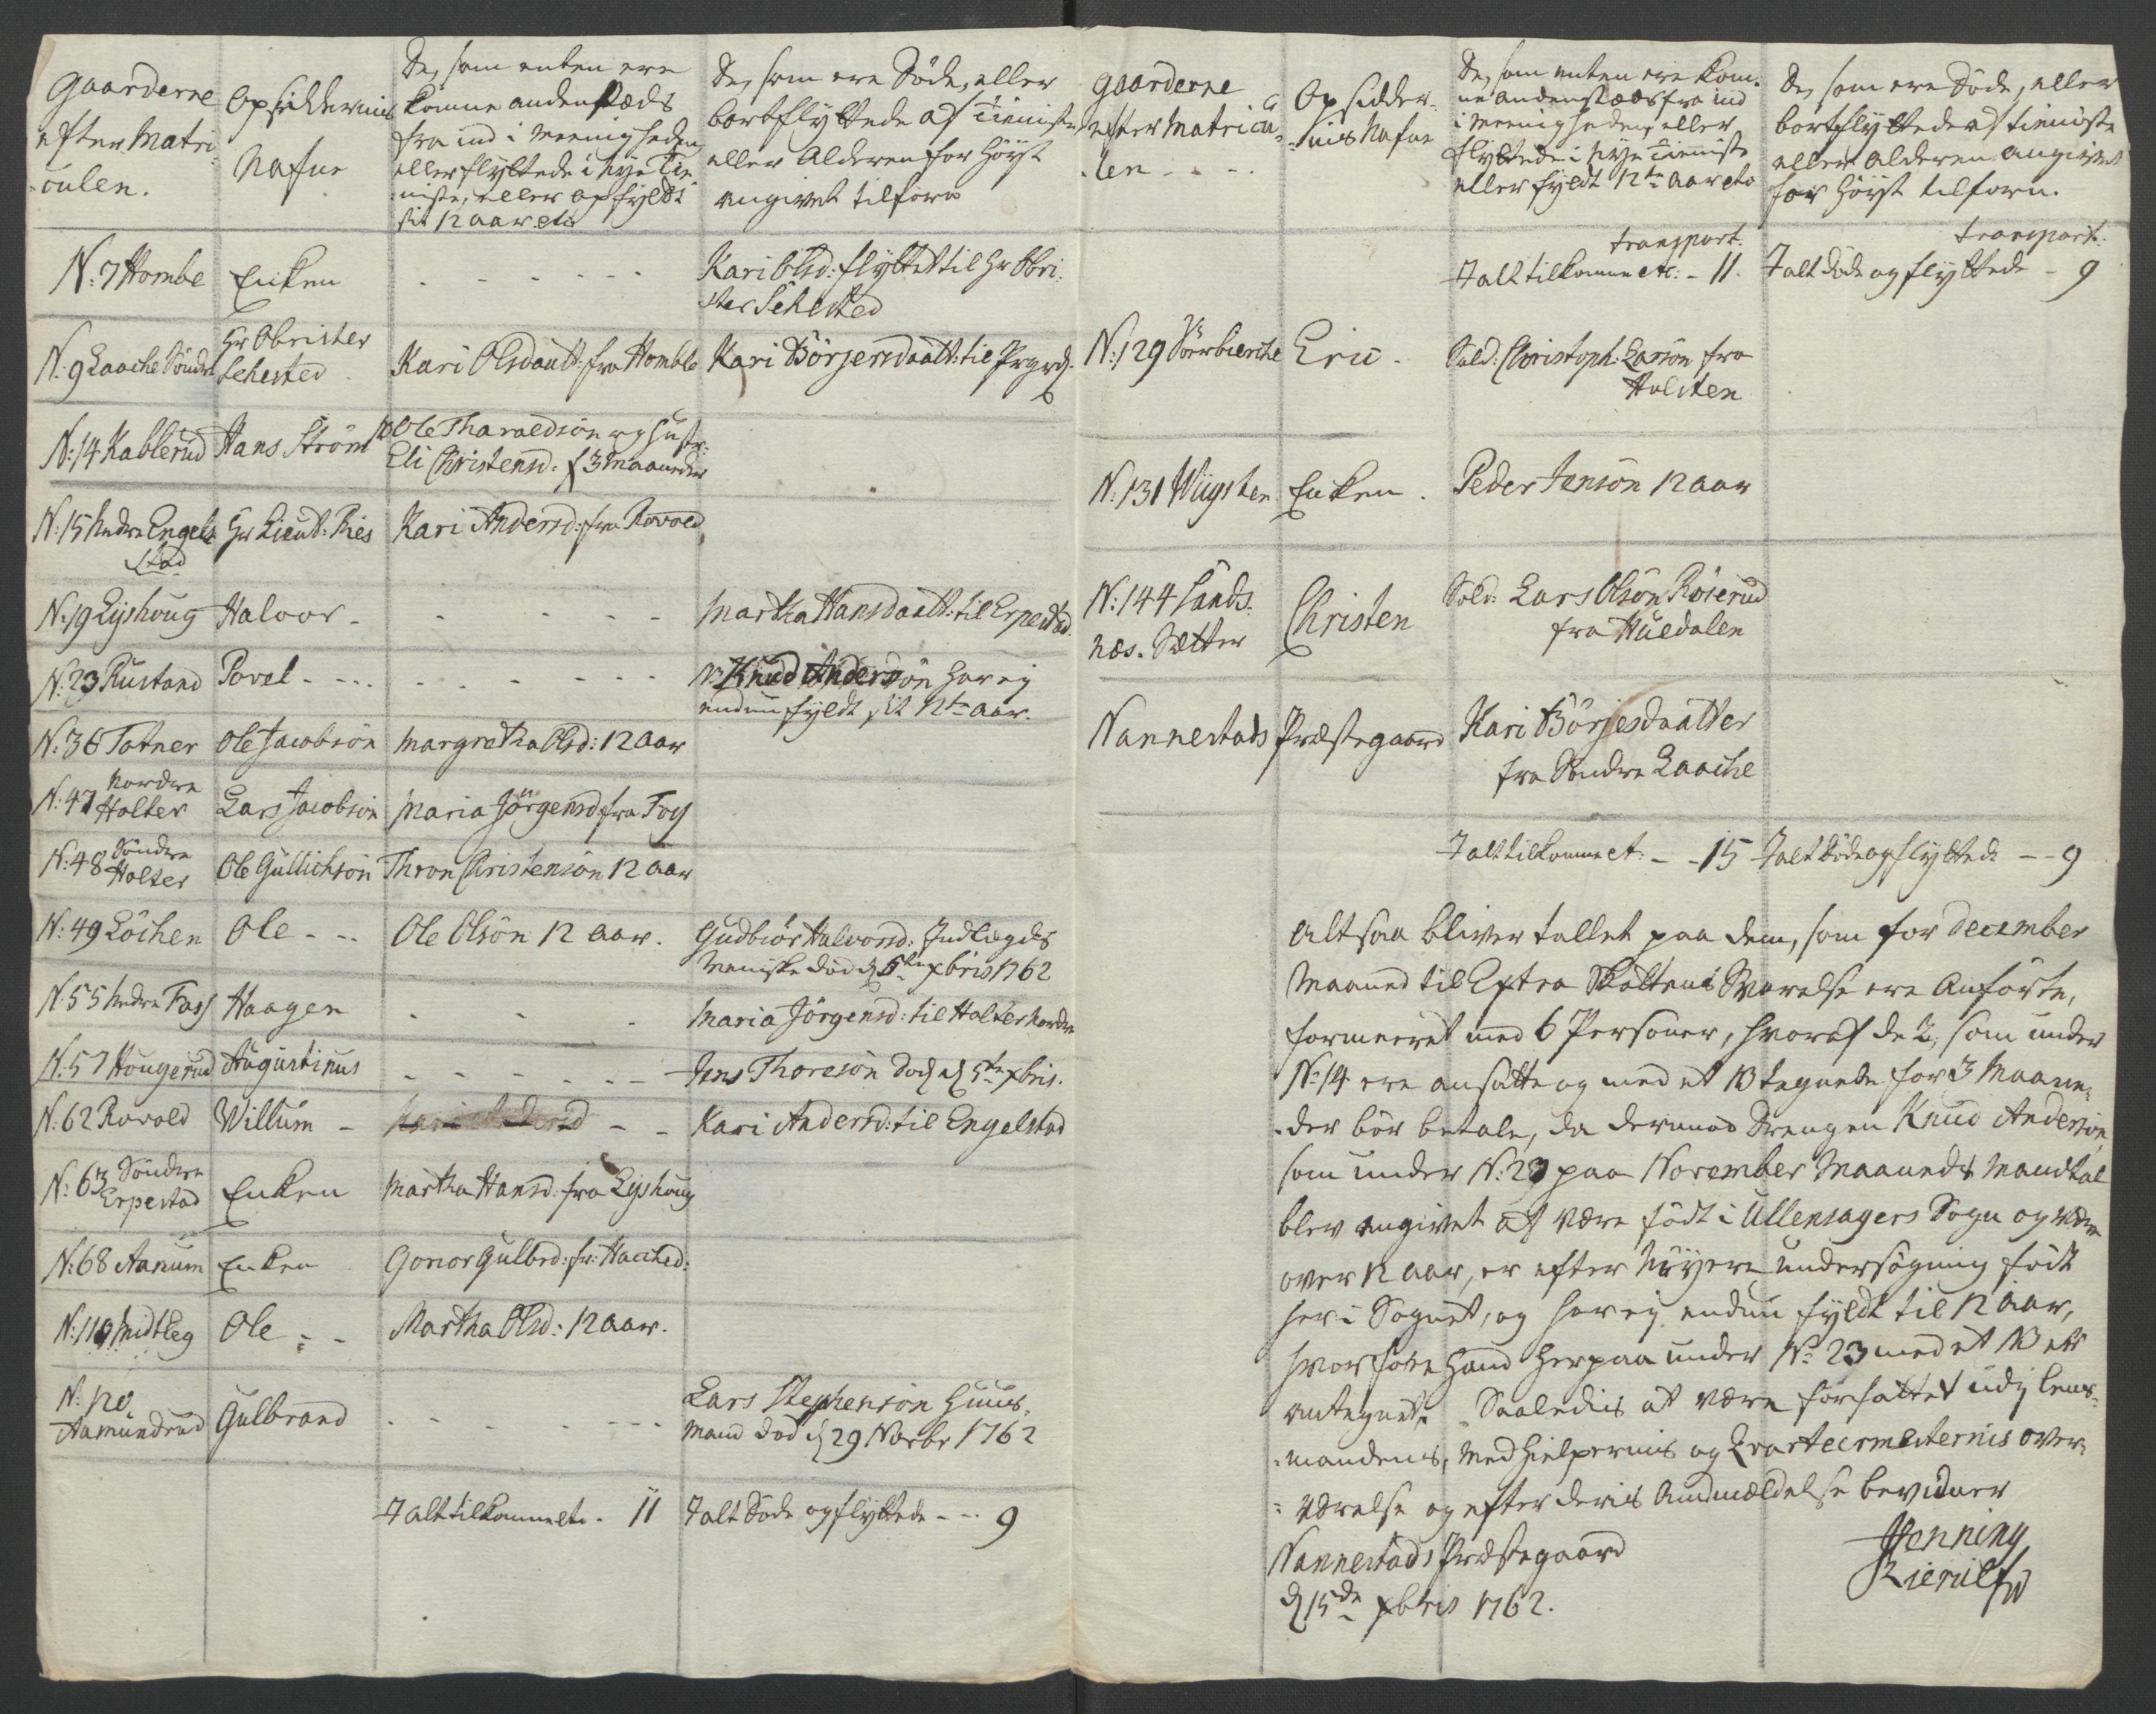 Gaarderne
efter Matri-
culen.
Opsiddernis
Nafne
De, som enten ere
komne andenstæds
fra ind i Meenigheden
eller flyttede i nye Tie-
niste, eller opfyldt
sit 12 aar etc
De, som ere Döde, eller
bortflyttede af Tieniste
eller Alderen for höyt
angivet tilforn
N: 7 Hombe Enken - - - - - Kari Olsd: flyttet til Hr Obri-
ster Sehested
N: 9 Laache Söndre Hr Obrister
Sehested Kari Olsdaatt: fra Homble Kari Börjersdaatt: til Prgrd.
N: 14 Kablerud Hans Ström NB Ole Tharaldsön og Hustr:
Eli Christensd: f 3 Maaneder
N: 15 Nedre Engel-
stad Hr Lieut: Ries Kari Andersd: fra Rovold
N: 19 Lyshoug Halvor - - - - Martha Hansdaatt: til Erpestad
N: 23 Rustand Povel - - - - - - - NB Knud Andersön har ej
endnu fyldt sit 12te aar.
N: 36 Totner Ole Jacobsön Margretha Olsd: 12 aar
N: 47 Nordre
Holter Lars Jacobsön Maria Jörgensd fra Fossj
N: 48 Söndre
Holter Ole Gullichsön Thron Christensön 12 aar
N: 49 Löchen Ole - - - Ole Olsön 12 aar. Gudbiör Halvorsd: Indlægds
Menniske död d 5te xbris 1762
N: 55 Nedre Foss Haagen - - - Maria Jörgensd: til Holter Nordre
N: 57 Hougerud Augustinus - - - - - - Jens Thoresön Död d 5te xbris.
N: 62 Rovold Willum - Kari Andersd - - Kari Andersd: til Engelstad
N: 63 Söndre
Erpestad Enken Martha Hansd: fra Lyshoug
N: 68 Aanum Enken Gonor Gulbrd: fr: Hached:
N: 110 Midtleg Ole - - Martha Olsd: 12 aar.
N: 120
Aamundrud Gulbrand - - - - - - - Lars Stephensön Huus-
mand Död d 29 Novbr 1762
I alt tilkomne etc - 11 I alt Döde og flyttede - - 9
Gaarderne
efter Matricu-
len - - - -
Opsidder-
nis Nafne
De, som enten ere kom-
ne andenstæds fra ind
i Meenigheden, eller
flyttede i nye Tieniste
eller fyldt 12te aar etc
De, som ere Döde, eller
bortflyttede af tieniste
eller alderen angivet
for höyt tilforn.
transport.
I alt tilkomne etc: - 11.
transport:
I alt döde og flyttede - 9
N: 129 Sörbierche Eric - Sold: Christoph: Larsön fra
Holsten
N: 131 Wiigsten Enken - Peder Jensön 12 aar
N: 144 Sands-
næs. Sætter Christen Sold: Lars Olsön Röierud
fra Huudalen
Nannestads Præstegaard Kari Börjesdaatter
fra Söndre Laache
I alt tilkomne et: - - 15 I alt Döde og flyttede - - 9
Altsaa bliver tallet paa dem, som for December
Maaned til Extra Skattens Svarelse ere Anförte,
formeeret med 6 Personer, hvoraf de 2, som under
N: 14 ere ansatte og med et NB tegnede for 3 Maane-
der bör betale, da derimod Drengen Knud Andersön,
som under N: 23 paa November Maaneds Mandtal
blev angivet at være födt i Ullensagers Sogn og være
over 12 aar, er efter nöyere undersögning födt
her i Sognet, og har ej endnu fyldt til 12 aar,
hvorfore hand herpaa under N: 23 med et NB er
antegnet. Saaledis at være forfattet udj Lens-
mandens, Medhielpernis og Qvarteermesternis over-
værelse og efter deris Anmældelse bevidner
Nannestads Præstegaard
d 15de xbris 1762.
Henning
Kierulf